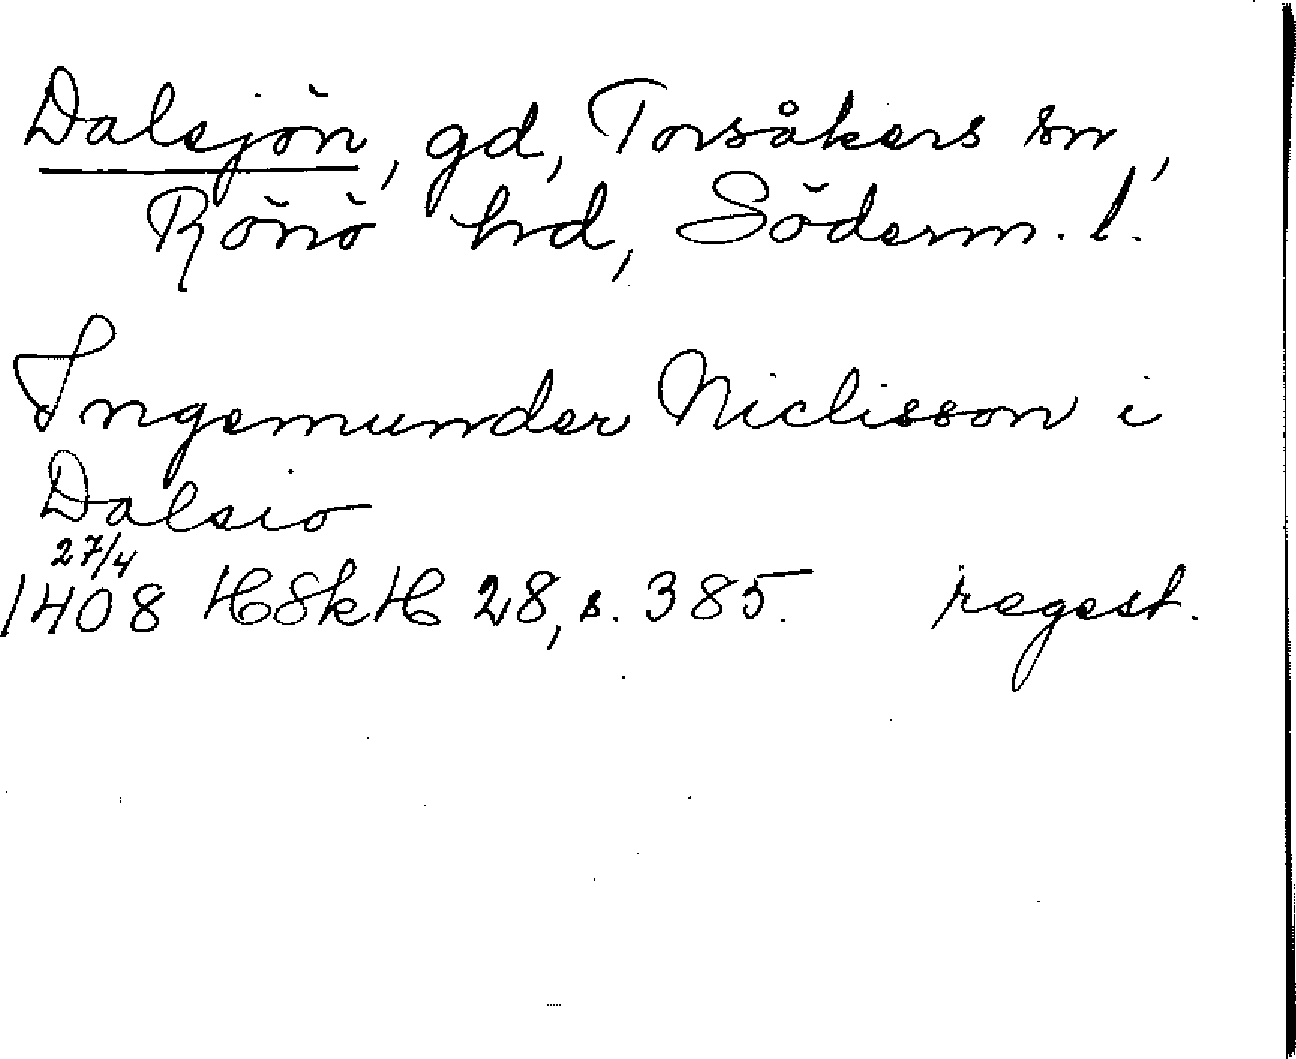 Dalsjön, gd, Torsåkers sn,
Rönö hd, Söderm. l.
Ingemunder Niclisson i
Dalsio
27/4
1408 HSkH 28, s. 385. regest.